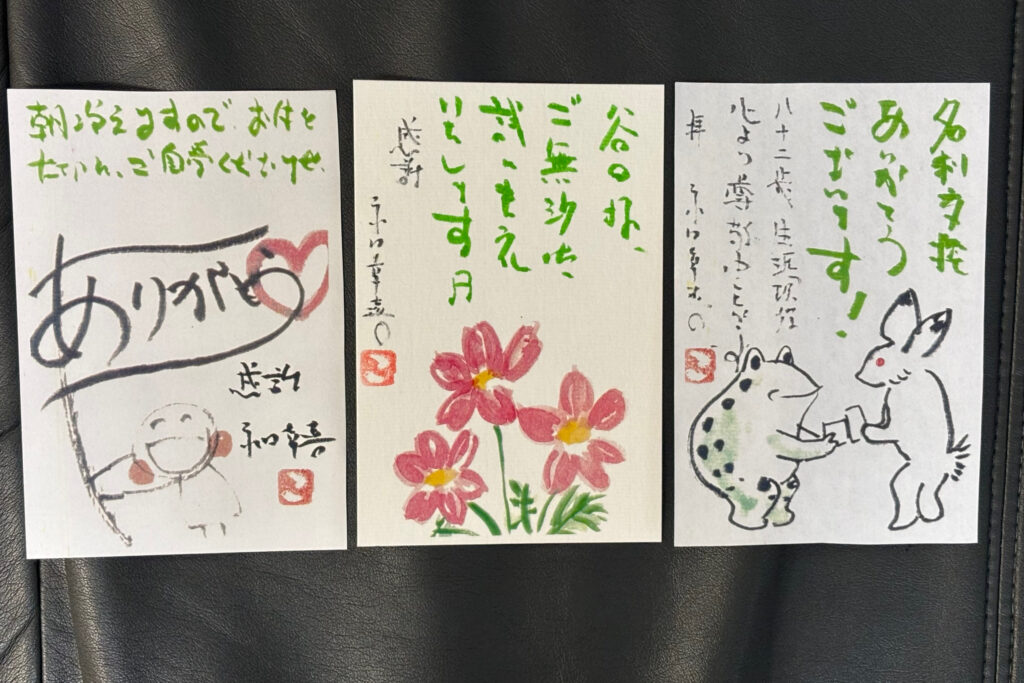 朝冷えますので、お体を
ご自愛くださいませ。
ありがとう
感謝
谷口様、
ご無沙汰、
失礼
いたします
感謝
名刺交換
ありがとう
ございます!
八十二歳、生涯現役
心より尊敬
拝